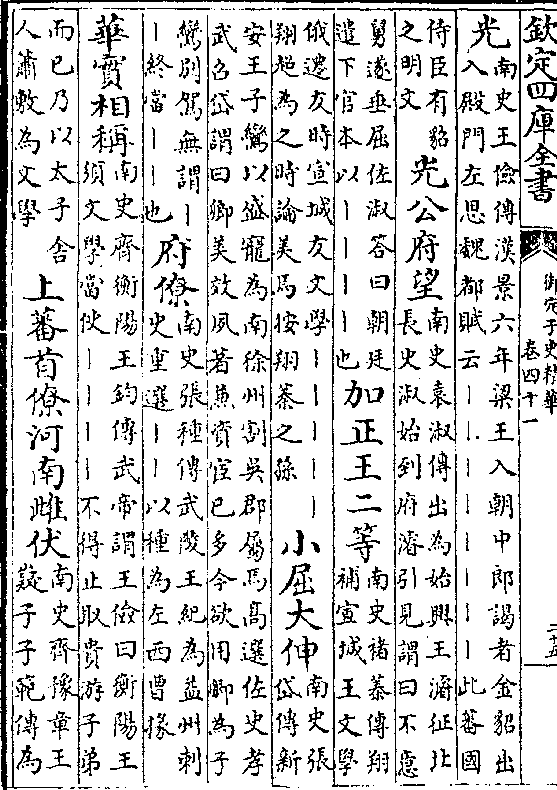 欽定四庫全書
御定子史精華
卷四十一
二十五
光
南史王儉傳漢景六年梁王入朝中郎謁者金貂出
入殿門左思魏都賦云｜｜｜｜｜｜｜｜此蕃國
侍臣有貂
之明文
光公府望
南史袁淑傳出為始興王濬征北
長史淑始到府濬引見謂曰不意
舅遂垂屈佐淑答曰朝廷
遣下官本以｜｜｜｜也
加正王二等
南史褚蓁傳翔
補宣城王文學
俄遷友時宣城友文學｜｜｜｜｜
翔超為之時論美焉按翔蓁之孫
小屈大伸
南史張
岱傳新
安王子鸞以盛寵為南徐州割吳郡屬焉高選佐史孝
武召岱謂曰卿美效夙著兼資宦已多今欲用卿為子
鸞別駕無謂｜
｜終當｜｜也
府僚
南史張種傳武陵王紀為益州刺
史重選｜｜以種為左西曹掾
華實相稱
南史齊衡陽王鈞傳武帝謂王儉曰衡陽王
須文學當使｜｜｜｜不得止取貴游子弟
而已乃以太子舍
人蕭敷為文學
上蕃首僚河南雌伏
南史齊豫章王
嶷子子範傳為